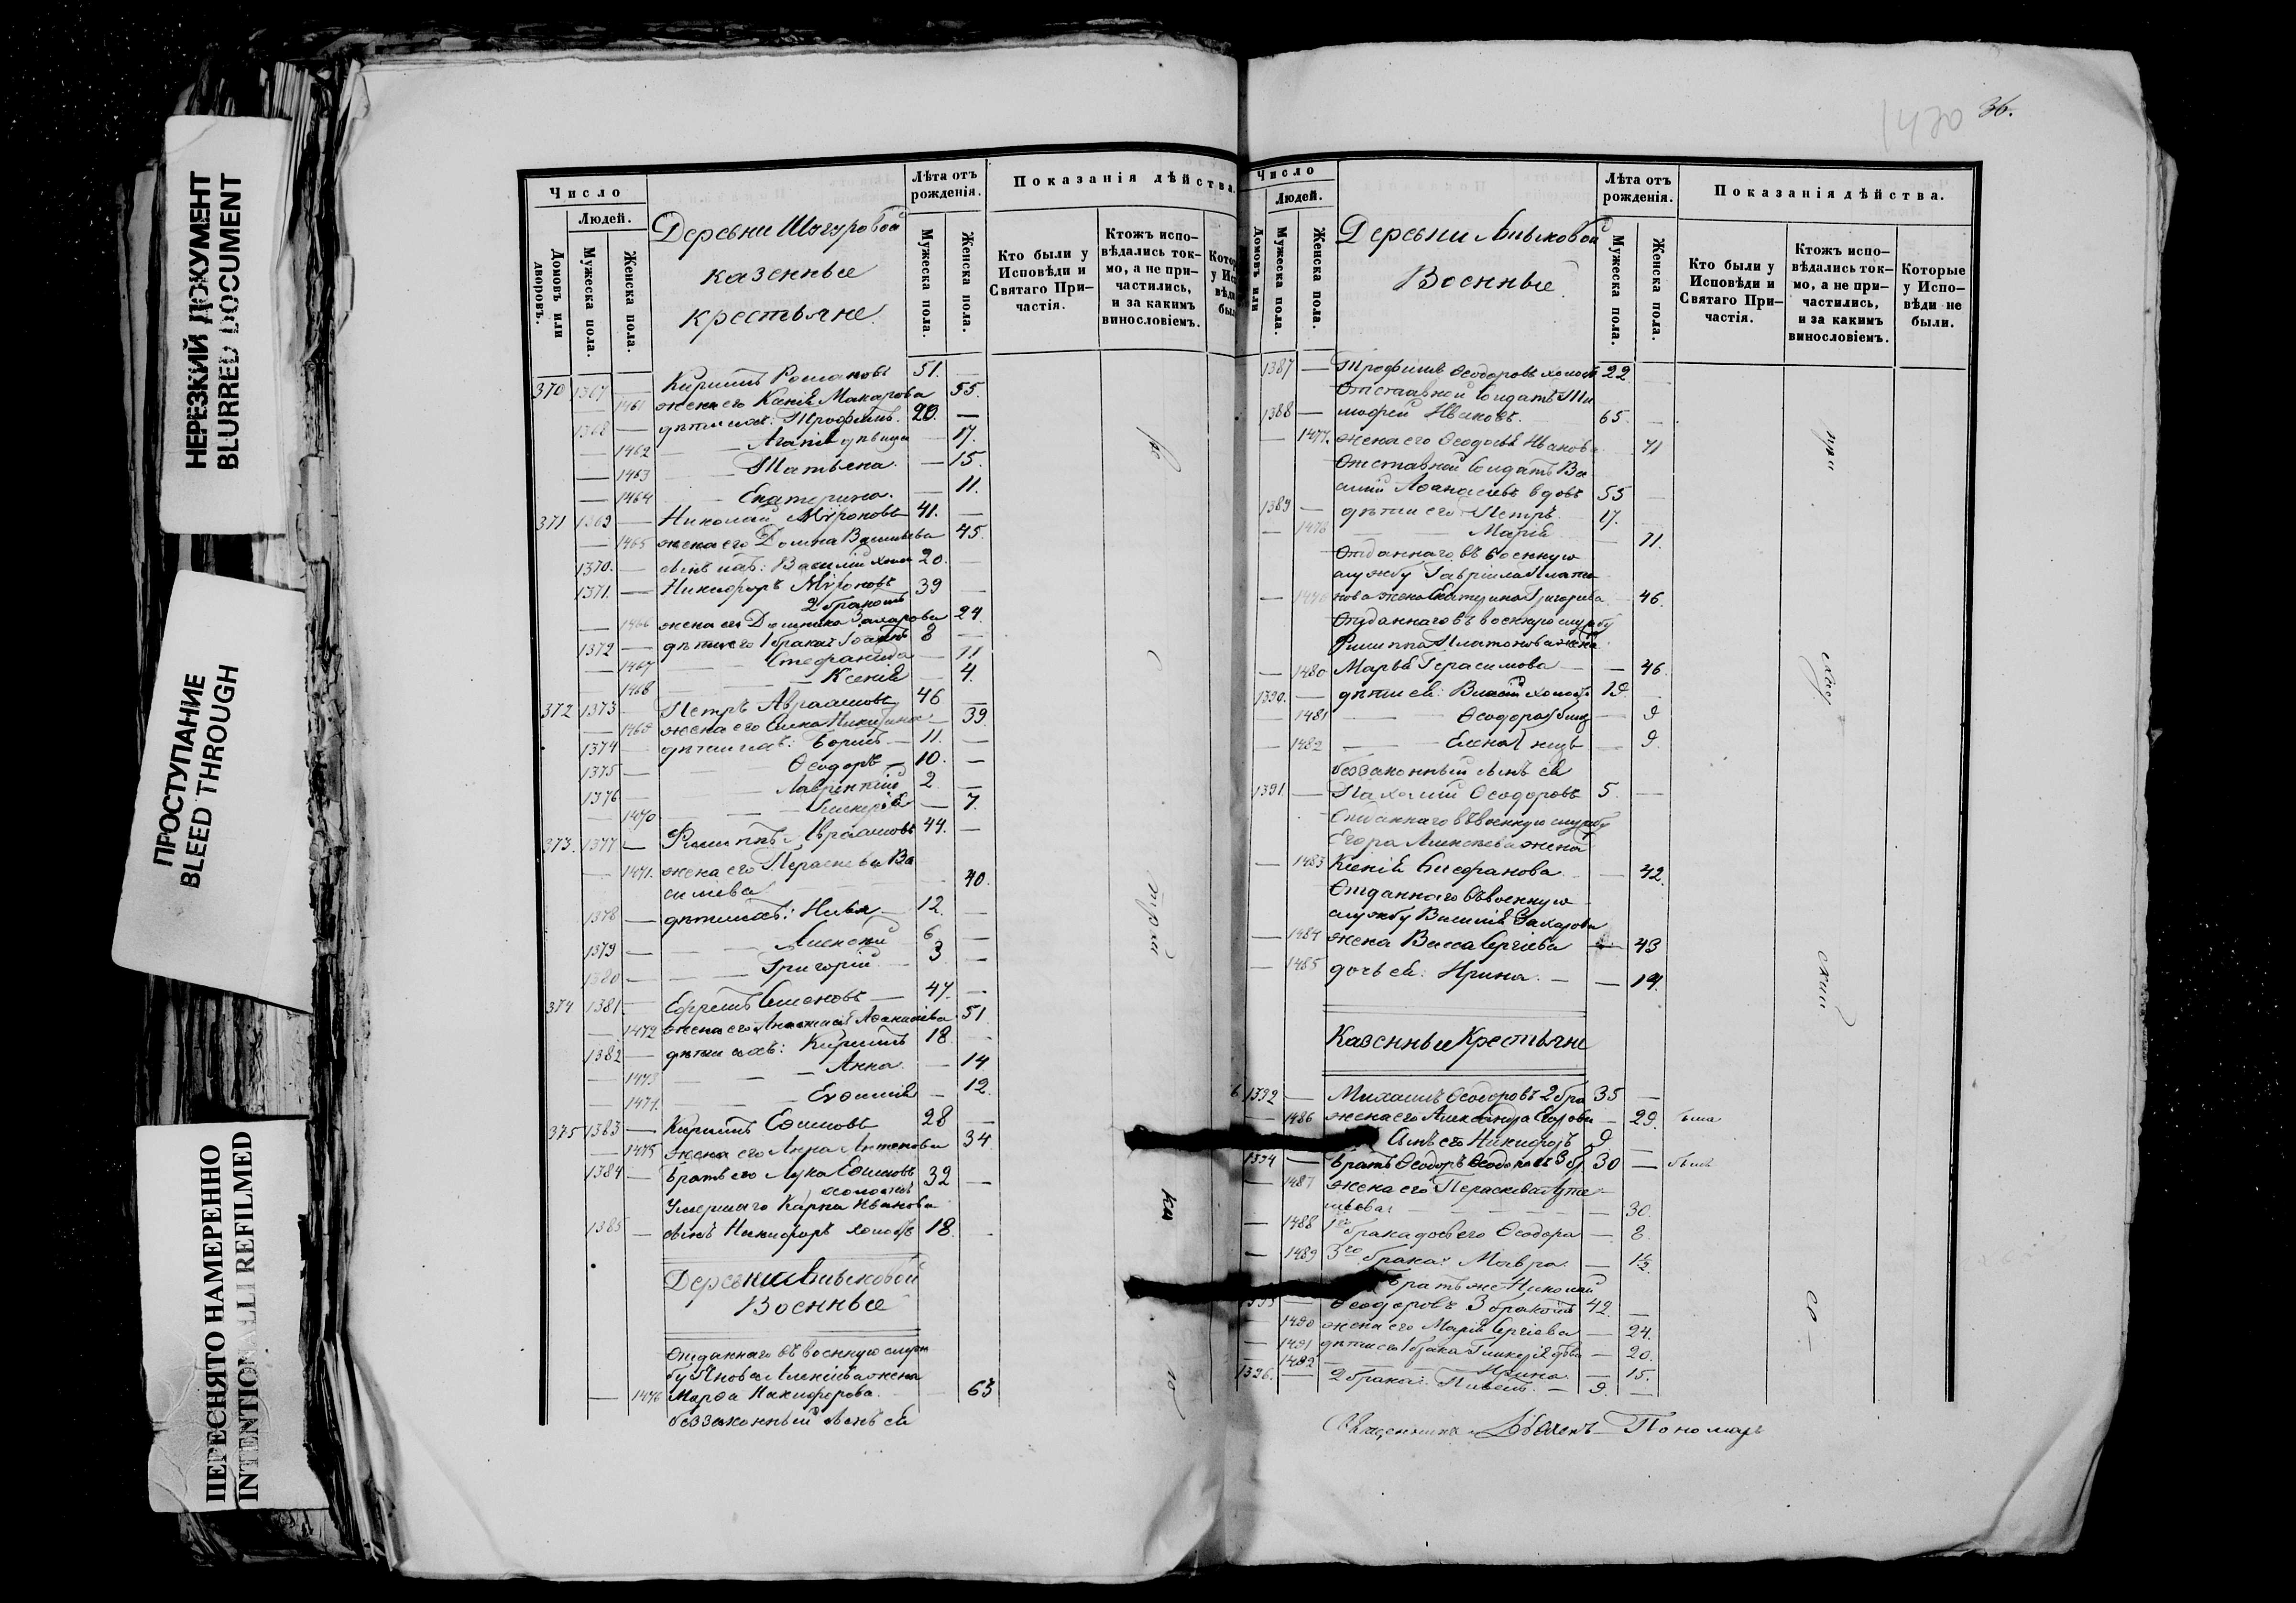 НЕРЕЗКИЙ ДОКУМЕНТ
BLURRED DOCUMENT
ПРОСТУПАНИЕ
BLEED THROUGH
ПЕРЕСНЯТО НАМЕРЕННО
INTENTIONALLI REFILMED
Число
Людей.
Домовъ или дворовъ.
Мужеска пола.
Женска пола.
Деревни Шугуровой
казенные
крестьяне.
Лѣта отъ рожденія.
Мужеска пола.
Женска пола.
Показанія дѣйства.
Кто были у Исповѣди и Святаго Причастія.
Ктожъ исповѣдались токмо, а не причастились, и за какимъ винословіемъ.
370 1367 — Кириллъ Романовъ 51. —
— 1461 жена его Ксенія Макарова 55.
1368 — дѣти ихъ: Трофимъ. 20. —
— 1462 — Агапія дѣвица — 17.
— 1463 — Татьяна. — 15.
— 1464 — Екатерина. — 11.
371 1369 — Николай Мѵроновъ 41. —
— 1465 жена его Домна Васильева 45.
1370. — сынъ ихъ: Василій холос 20. —
1371. — Никифоръ Мѵроновъ 39 —
2 бракомъ
— 1466 жена его Домника Захарова 24.
1372 — дѣти его 1 брака: Іоаннъ 8 —
— 1467 — Стефанида — 11
— 1468 — Ксенія — 4.
372 1373 — Петръ Авраамовъ 46 —
— 1469 жена его Анна Никитина — 39.
1374 — дѣти ихъ: Борисъ — 11. —
1375 — Ѳеодоръ — 10. —
1376 — Лаврентій 2. —
— 1470 — Гликерія — 7.
373. 1377 — Филиппъ Авраамовъ 44. —
— 1471. жена его Параскева Ва
сильева — 40.
1378 — дѣти ихъ: Илья — 12. —
1379 — Алексѣй 6 —
1380 — Григорій — 3 —
374 1381. — Ефремъ Семеновъ — 47. —
— 1472 жена его Анастасія Аѳанасіева 51
1382 — дѣти ихъ: Кириллъ 18 —
— 1473 — Анна — 14
— 1474. — Евѳимія — 12.
375 1383 — Кириллъ Ефимовъ 28 —
— 1475 жена его Анна Антонова 34
1384 — братъ его Лука Ефимовъ 32 —
холостъ
Умершаго Карпа Иванова
1385 — сынъ Никифоръ холостъ 18. —
Военные
Отданнаго въ военную служ
— 1476 Марѳа Никифорова. — 63
беззаконный сынъ ея
1420 36.
Число
Людей.
Домовъ или
Мужеска пола.
Женска пола.
Военные
Лѣта отъ рожденія.
Мужеска пола.
Женска пола.
Показанія дѣйства.
Кто были у Исповѣди и Святаго Причастія.
Ктожъ исповѣдались токмо, а не причастились, и за какимъ винословіемъ.
Которые у Исповѣди не были.
1387 — Трофимъ Ѳеодоровъ холост 22 —
Отставной Солдатъ Ти
1388 — мофей Ивановъ. 65. —
— 1477. жена его Ѳеодосія Иванова 71
Отставной Солдатъ Ва
силій Аѳанасіевъ вдовъ 55 —
1389 — дѣти его: Петръ 17. —
— 1478 — Марія — 11.
Отданнаго въ военную
службу Гавріила Плато
нова жена Екатерина Григорьева — 46.
Отданнаго въ военную службу
Филиппа Платонова жена
— 1480 Марья Герасимова — 46.
1390. — дѣти ея: Василій холостъ 19 —
— 1481 — Ѳеодора близ — 9
— 1482 — Елена нецъ — 9.
беззаконный сынъ ея
1391. — Пахомій Ѳеодоровъ 5. —
Отданнаго въ военную службу
Егора Алексѣева жена
— 1483 Ксенія Епифанова — 42.
Отданнаго въ военную
службу Василія Захарова
— 1484 жена Васса Сергіева — 43
— 1485 дочь ея: Ирина. — 14.
Казенные Крестьяне
6 1392 — Михаилъ Ѳеодоровъ 2 бра 35 —
— 1486 жена его Александра Егорова — 29. была
Сынъ его Никифоръ 9 —
1394 — братъ Ѳеодоръ Ѳеодоровъ 3 б. 30 — былъ
— 1487 жена его Параскева
— 30.
— 1488 1го брака дочь его Ѳеодора — 8.
— 1489 3го брака: Мавра — 1½.
братъ же Николай
Ѳеодоровъ 3 бракомъ 42. —
— 1490 жена его Марія Сергіева — 24.
— 1491 дѣти его 1 брака Гликерія дѣва — 20.
— 1492 — Ирина. — 15.
1396. — 2 брака: — 9. —
Священника Пономарь